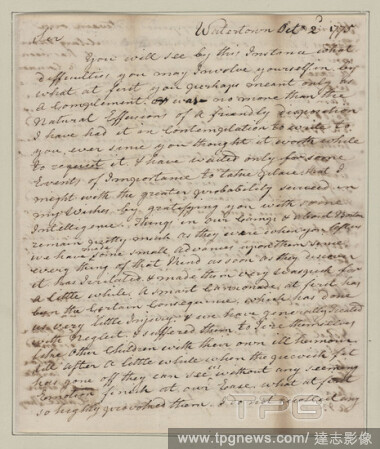 Watertown Octr 2d 1775
Sir
You will see by this Instance what
difficulties you may Involve yourself in by
what at first you perhaps meant only as
A Complement. It was no more than the
Natural Effusions of a friendly disposition
I have had it in Contemplation to write to
you, ever since you thought it worth while
to request it, & have waited only for some
Events of Importance to take place that I
might with the greater probability succeed in
my Wishes by gratifying you with some
Intelligence. Things in our Camps & about Boston
remain pretty much as they were when you left us
we have made some small Advances upon them since
every thing of that kind as soon as they discover
it has Irritated & made them very as for
A little while. A smart Cannonade at first has
been the Certain Consequence, which has done
us very little Injury. & we have generally treated
with Neglect, & suffered them to themselves
like other Children with their own ill humour
till after A little while when the fit
has gone off they can see us without any seeming
Emotion finish at our ease what at first
so highly provoked them. I do not recollect any
TPG
www.tpgnews.com / 達志影像